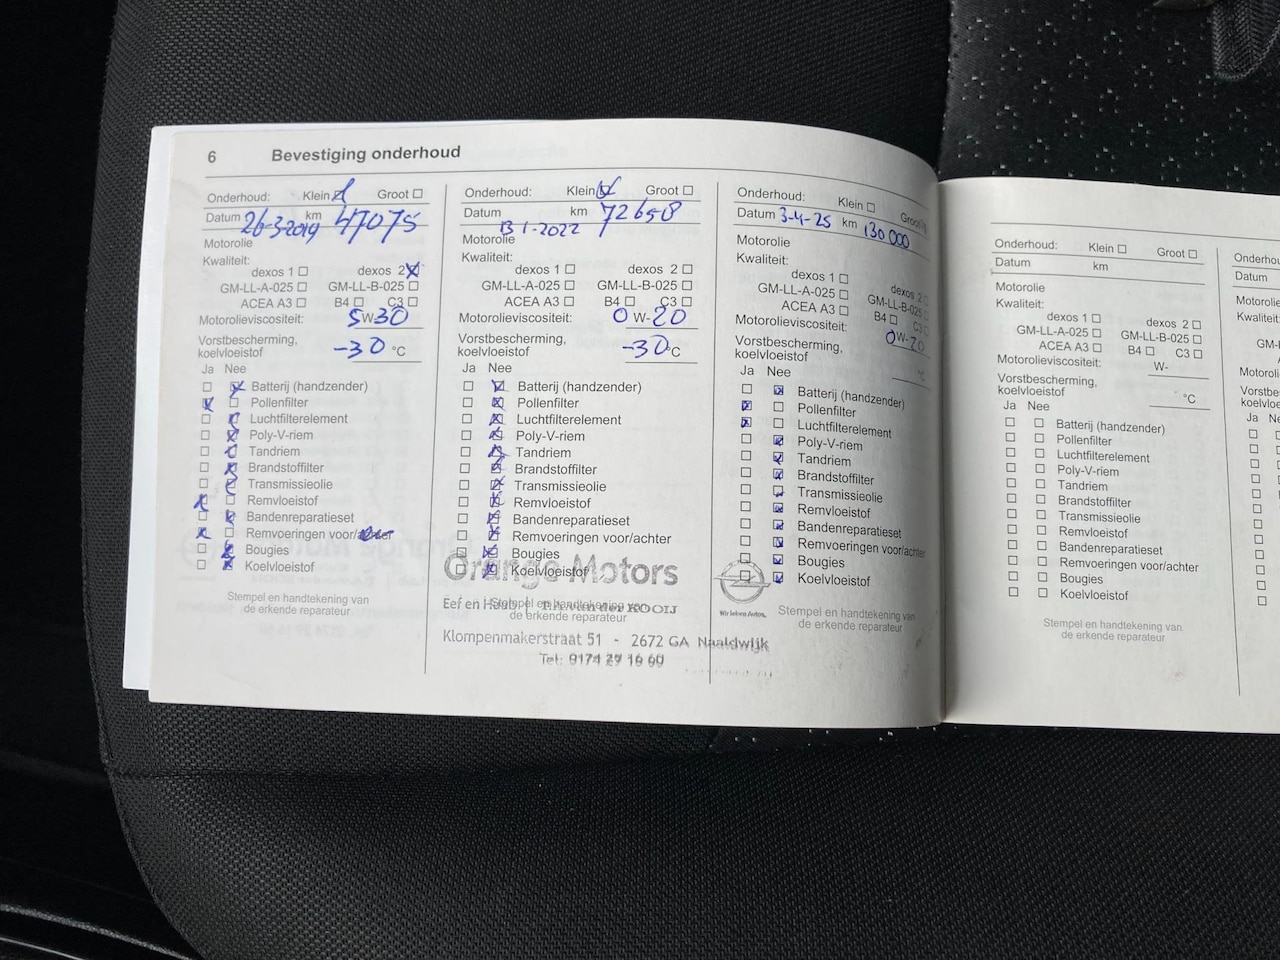 6 Bevestiging onderhoud
Onderhoud: Klein Groot
Datum 26-3-2019 km 47075
Motorolie
Kwaliteit:
dexos 1 dexos 2
GM-LL-A-025 GM-LL-B-025
ACEA A3 B4 C3
Motorolieviscositeit: 5W30
Vorstbescherming,
koelvloeistof -30 °C
Ja Nee
Batterij (handzender)
Pollenfilter
Luchtfilterelement
Poly-V-riem
Tandriem
Brandstoffilter
Transmissieolie
Remvloeistof
Bandenreparatieset
Remvoeringen voor/achter
Bougies
Koelvloeistof
Stempel en handtekening van
de erkende reparateur
Onderhoud: Klein Groot
Datum 13 1-2022 km 72658
Motorolie
Kwaliteit:
dexos 1 dexos 2
GM-LL-A-025 GM-LL-B-025
ACEA A3 B4 C3
Motorolieviscositeit: 0W-20
Vorstbescherming,
koelvloeistof -30°C
Ja Nee
Batterij (handzender)
Pollenfilter
Luchtfilterelement
Poly-V-riem
Tandriem
Brandstoffilter
Transmissieolie
Remvloeistof
Bandenreparatieset
Remvoeringen voor/achter
Bougies
Koelvloeistof
Orange Motors
Stempel en handtekening van
de erkende reparateur
Klompenmakerstraat 51 - 2672 GA Naaldwijk
Tel: 0174 29 16 60
Onderhoud: Klein Groot
Datum 3-4-25 km 130 000
Motorolie
Kwaliteit:
dexos 1 dexos 2
GM-LL-A-025 GM-LL-B-025
ACEA A3 B4 C3
Motorolieviscositeit: 0W-20
Vorstbescherming,
koelvloeistof °C
Ja Nee
Batterij (handzender)
Pollenfilter
Luchtfilterelement
Poly-V-riem
Tandriem
Brandstoffilter
Transmissieolie
Remvloeistof
Bandenreparatieset
Remvoeringen voor/achter
Bougies
Koelvloeistof
Wir leben Autos.
Stempel en handtekening van
de erkende reparateur
Onderhoud: Klein Groot
Datum km
Motorolie
Kwaliteit:
dexos 1 dexos 2
GM-LL-A-025 GM-LL-B-025
ACEA A3 B4 C3
Motorolieviscositeit: W-
Vorstbescherming,
koelvloeistof °C
Ja Nee
Batterij (handzender)
Pollenfilter
Luchtfilterelement
Poly-V-riem
Tandriem
Brandstoffilter
Transmissieolie
Remvloeistof
Bandenreparatieset
Remvoeringen voor/achter
Bougies
Koelvloeistof
Stempel en handtekening van
de erkende reparateur
Datum
Ja